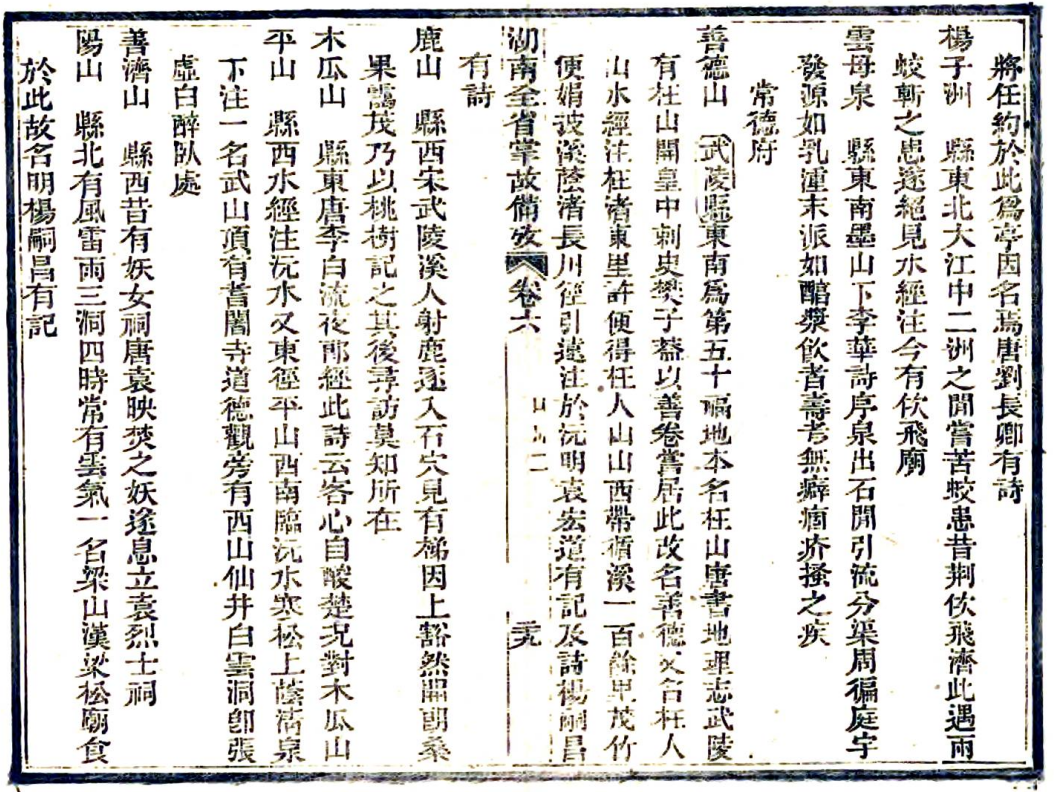 將任約於此爲亭因名焉唐劉長卿有詩
楊子洲　縣東北大江中二洲之閒嘗苦蛟患昔荆佽飛濟此遇兩
蛟斬之患遂絕見水經注今有佽飛廟
雲母泉　縣東南墨山下李華詩序泉出石閒引流分渠周徧庭宇
發源如乳湩末派如醅漿飲者壽考無癖痼疥搔之疾
常德府
善德山　武陵縣東南爲第五十福地本名枉山唐書地理志武陵
有枉山開皇中刺史樊子葢以善卷嘗居此改名善德又名枉人
山水經注枉渚東里許便得枉人山山西帶循溪一百餘里茂竹
便娟披溪蔭渚長川徑引遠注於沅明袁宏道有記及詩楊嗣昌
湖南全省掌故備攷　卷六　二　二九
有詩
鹿山　縣西宋武陵溪人射鹿逐入石穴見有梯因上豁然開朗桑
果靄茂乃以桃樹記之其後尋訪莫知所在
木瓜山　縣東唐李白流夜郎經此詩云客心自酸楚况對木瓜山
平山　縣西水經注沅水又東徑平山西南臨沅水寒松上蔭清泉
下注一名武山頂有耆闍寺道德觀旁有西山仙井白雲洞卽張
虛白醉臥處
善濟山　縣西昔有妖女祠唐袁映焚之妖遂息立袁烈士祠
陽山　縣北有風雷雨三洞四時常有雲氣一名梁山漢梁松廟食
於此故名明楊嗣昌有記